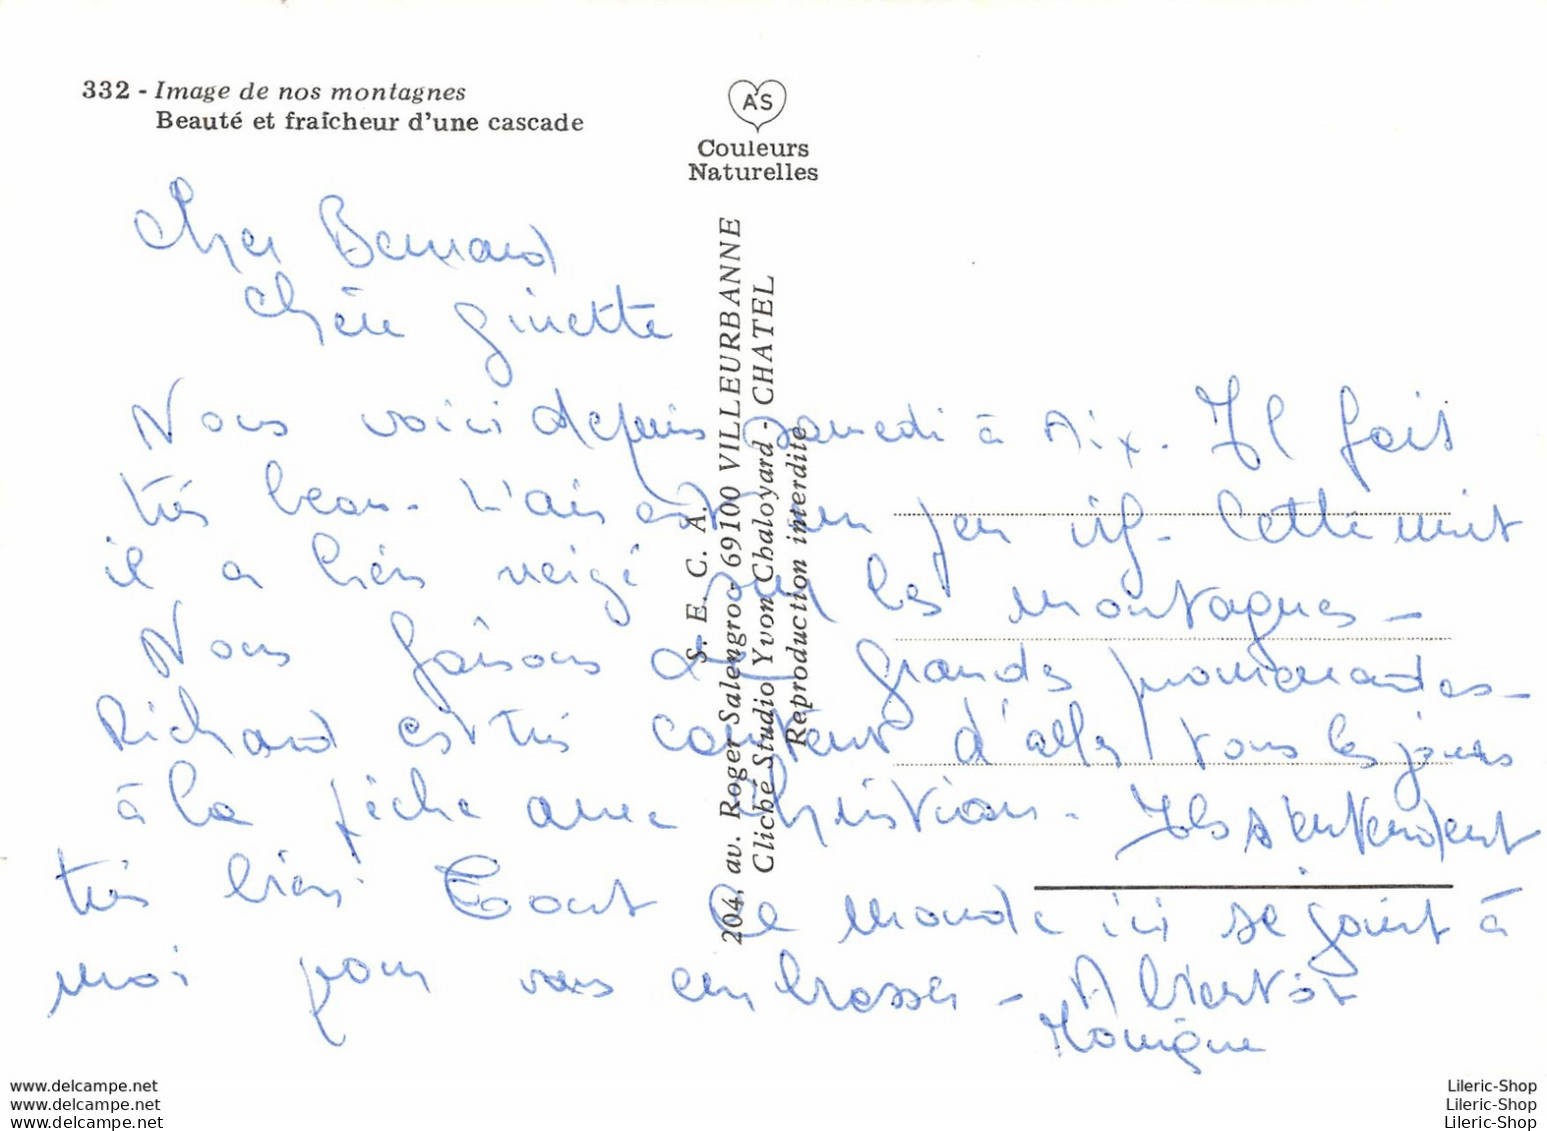 332 - Image de nos montagnes
Beauté et fraîcheur d'une cascade
AS
Couleurs
Naturelles
S. E. C. A.
204, av. Roger Salengro - 69100 VILLEURBANNE
Cliché Studio Yvon Chaloyard - CHATEL
Reproduction interdite
Cher Bernard
Chère Ginette
Nous voici depuis samedi à Aix. Il fait
très beau. L'air est un peu vif. Cette nuit
il a bien neigé sur les montagnes -
Nous faisons de grandes promenades -
Richard est très content d'aller tous les jours
à la pêche avec Christian. Ils s'entendent
très bien. Tout le monde ici se joint à
moi pour vous embrasser - A bientôt
Monique
www.delcampe.net
www.delcampe.net
www.delcampe.net
Lileric-Shop
Lileric-Shop
Lileric-Shop